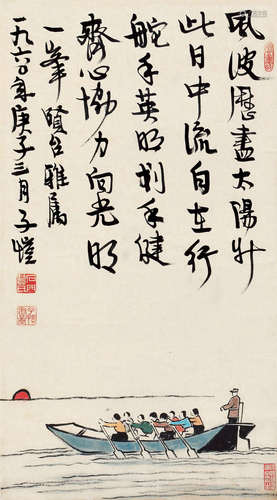 風波歷盡太陽升
此日中流自在行
舵手英明划手健
齊心協力向光明
一峯賢台雅屬
一九六〇年庚子三月子愷